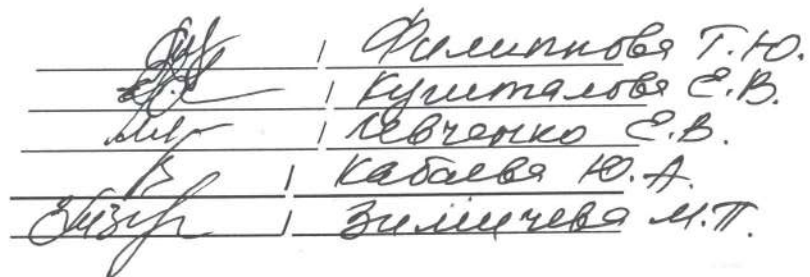 / Филиппова Т.Ю.
/ Кушталова Е.В.
/ Левченко Е.В.
/ Кабаева Ю.А.
/ Зимичева М.П.